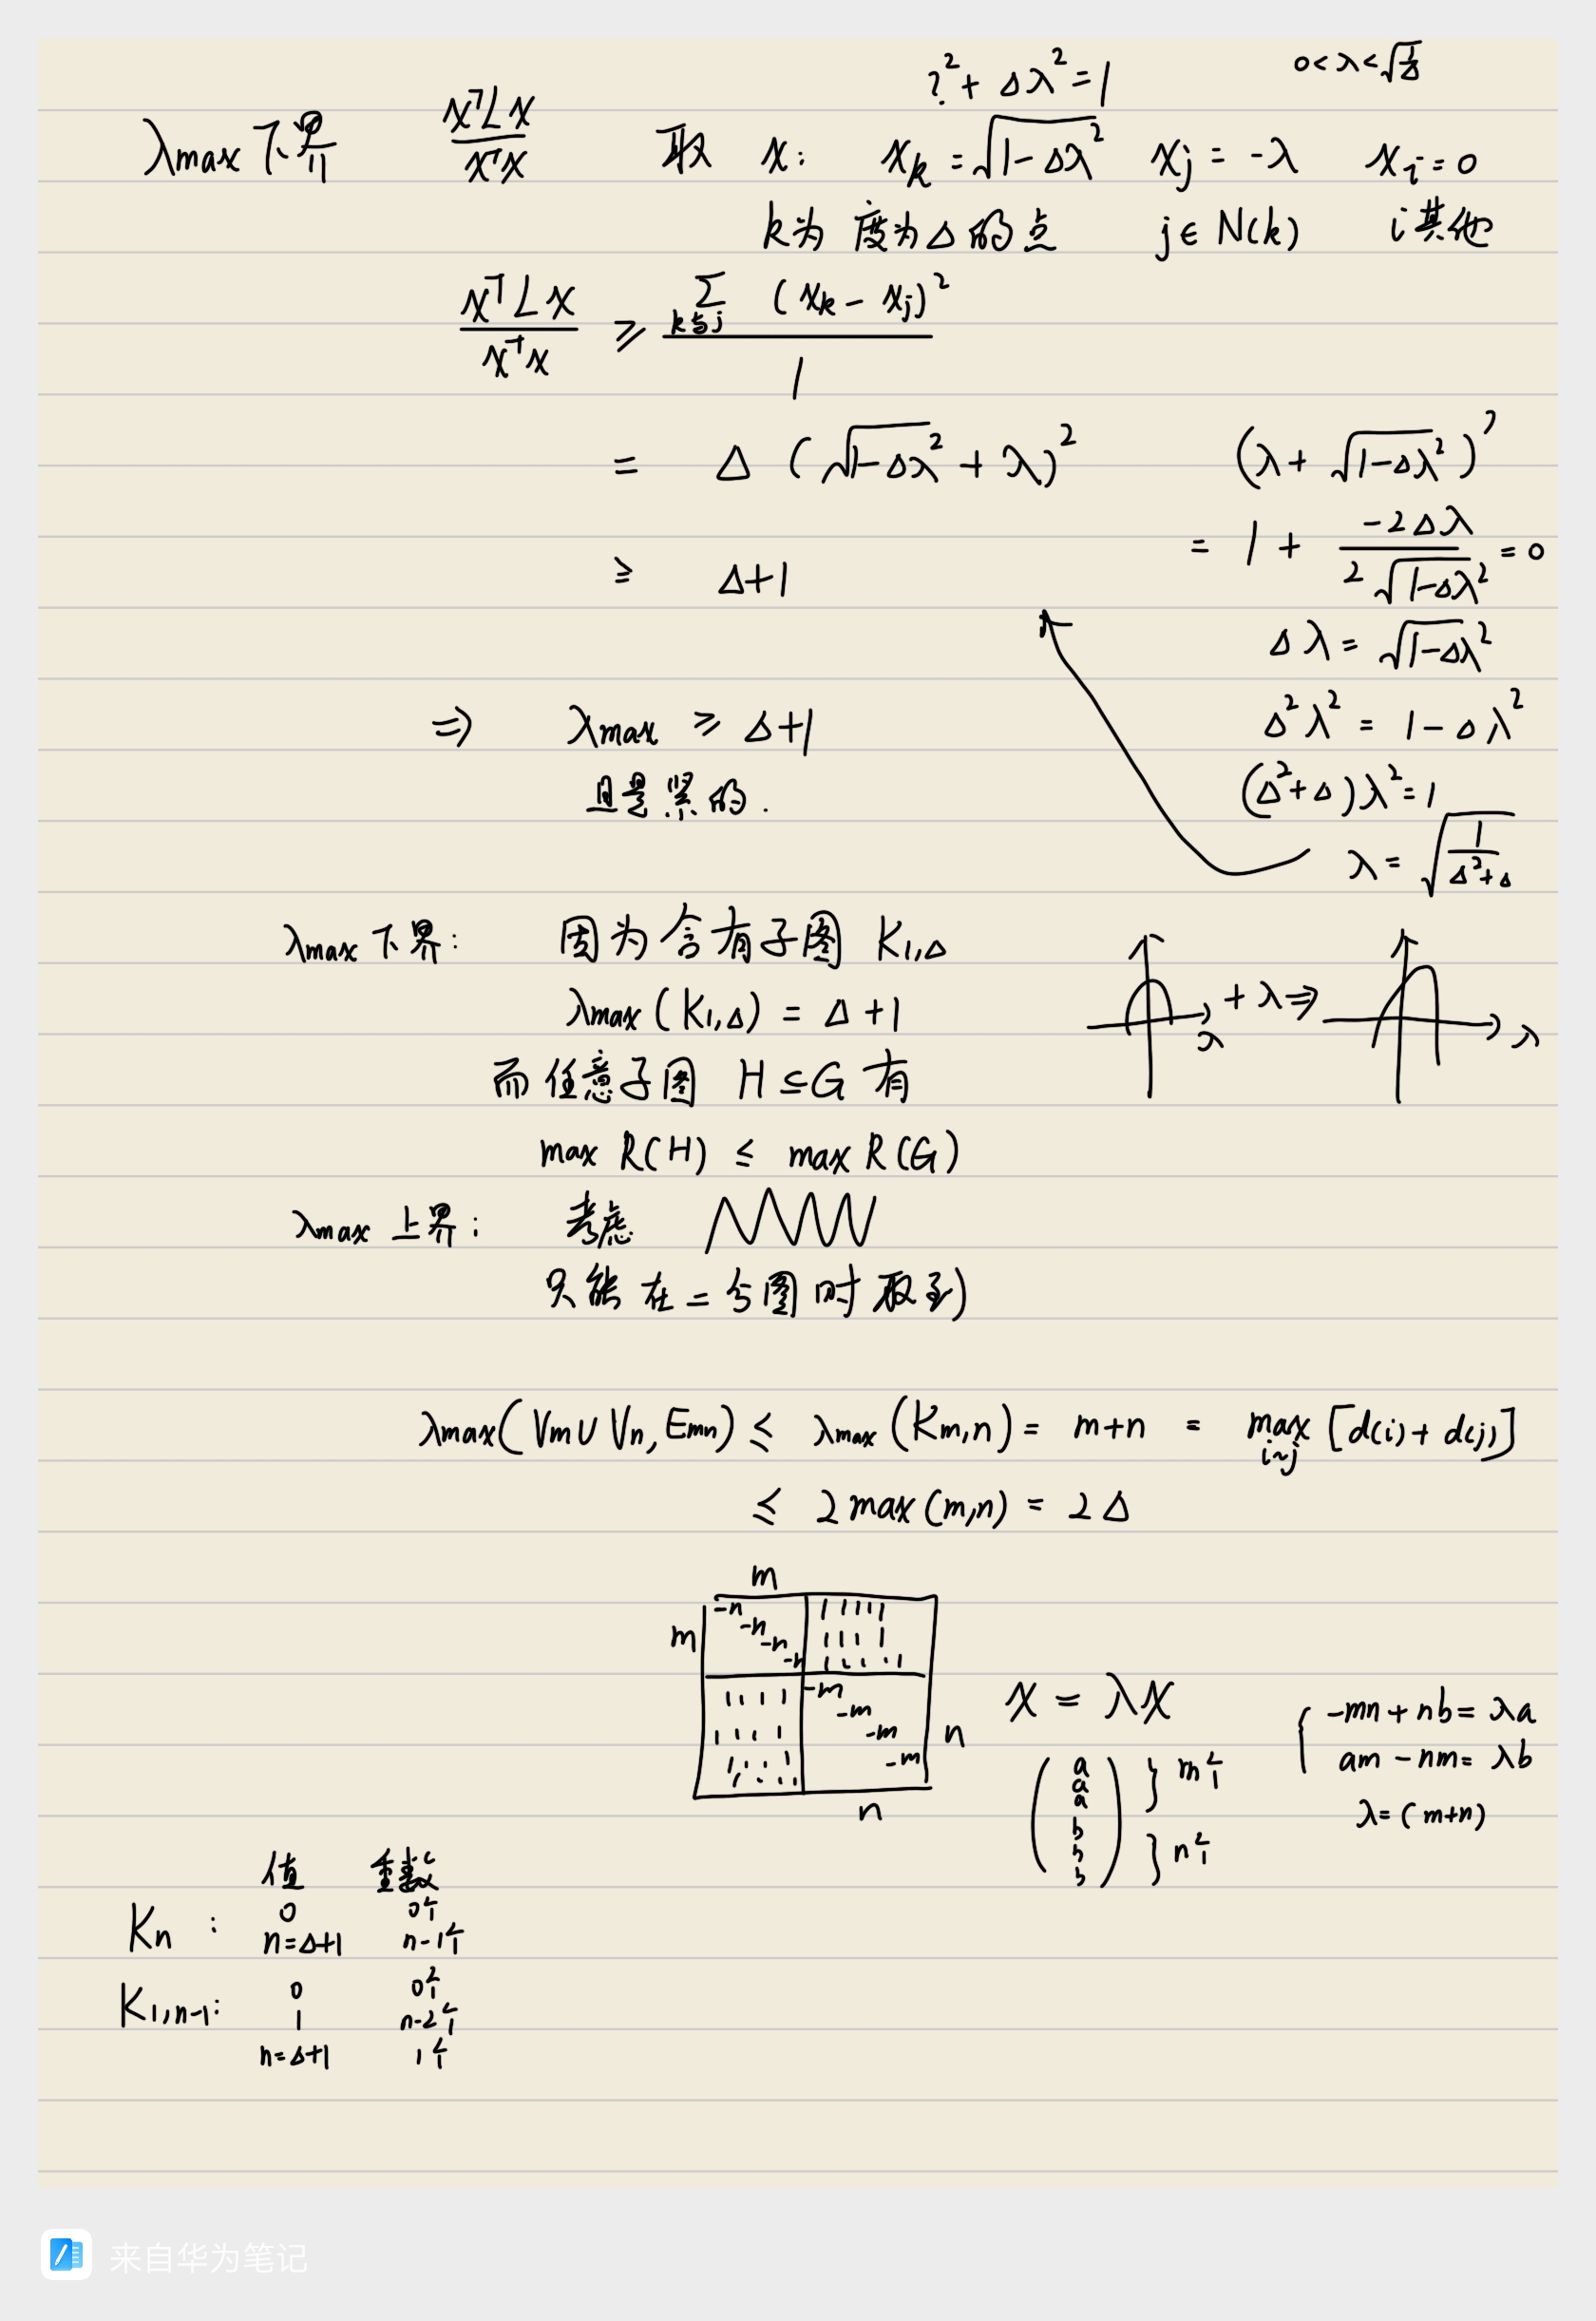 ?² + Δλ² = 1    0 < λ < √(1/Δ)
λmax 下界    xᵀLx / xᵀx    取 x:  x_k = √(1-Δλ²)  x_j = -λ  x_i = 0
k为 度为Δ的点  j ∈ N(k)  i 其他
xᵀLx / xᵀx ≥ Σ_{k与j} (x_k - x_j)² / 1
= Δ (√(1-Δλ²) + λ)²
≥ Δ+1
(λ + √(1-Δλ²))'
= 1 + (-2Δλ) / (2√(1-Δλ²)) = 0
Δλ = √(1-Δλ²)
Δ²λ² = 1 - Δλ²
(Δ²+Δ)λ² = 1
λ = √(1/(Δ²+Δ))
⇒ λmax ≥ Δ+1
且是紧的.
λmax 下界:  因为含有子图 K₁,Δ
λmax (K₁,Δ) = Δ+1
λ + λ ⇒ λ
而任意子图 H ⊆ G 有
max R(H) ≤ max R(G)
λmax 上界:  考虑
只能在二分图时取到
λmax (Vm ∪ Vn, Emn) ≤ λmax (Km,n) = m+n = max_{i~j} [d(i) + d(j)]
≤ 2max(m,n) = 2Δ
m
m  -n -n -n -n  1 1 1 1 1
1 1 1 1
1 1 1 1  -m -m -m -m  n
n
x = λx
(a a a b b b)  } m个  } n个
{ -mn + nb = λa
am - nm = λb
λ = (m+n)
值  重数
Kn :  0  0个
n=Δ+1  n-1个
K₁,n-1:  0  0个
1  n-2个
n=Δ+1  1个
来自华为笔记